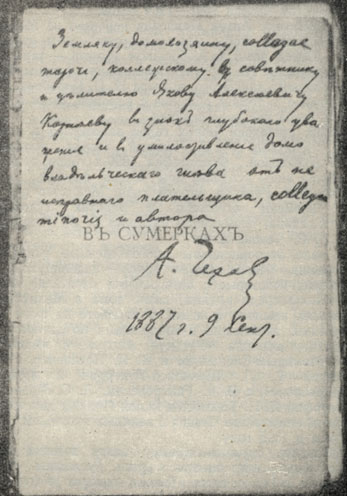 Земляку, домохозяину, collegae
morosi, коллежскому совѣтнику
и цѣлителю Якову Алексѣевичу
Корнѣеву въ знакъ глубокаго ува
женія и въ умилостивленіе домо
владѣльческаго гнѣва отъ не
исправнаго плательщика, collega
и автора
ВЪ СУМЕРКАХЪ
А. Чехов
1887 г. 9 Сент.